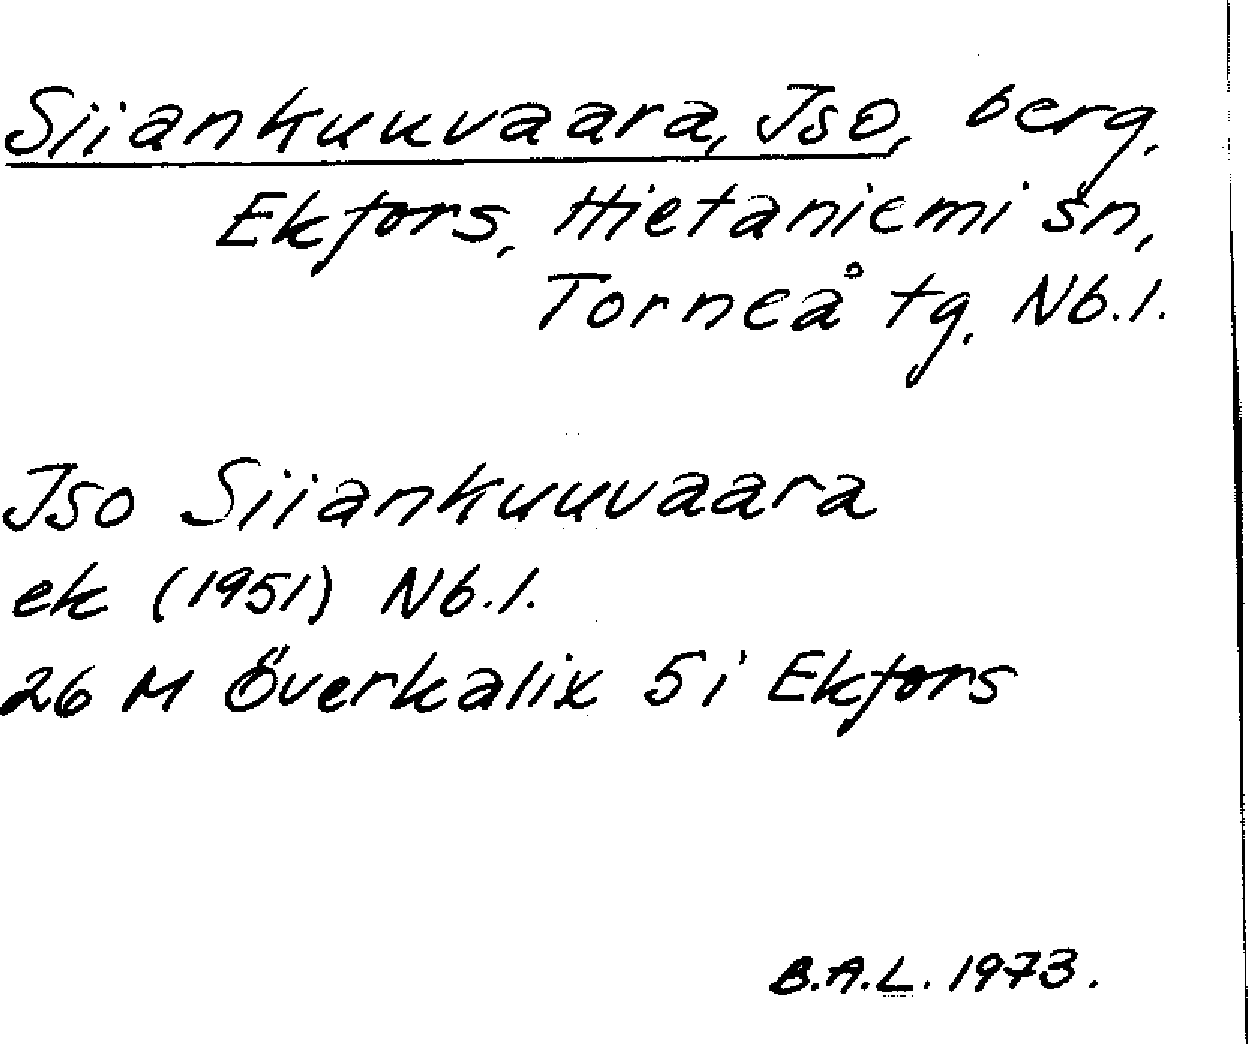 Siiankuuvaara, Iso, berg,
Ekfors, Hietaniemi sn,
Torneå tg, Nb.l.
Iso Siiankuuvaara
ek (1951) Nb.l.
26 M Överkalix 5i Ekfors
B.A.L. 1973.